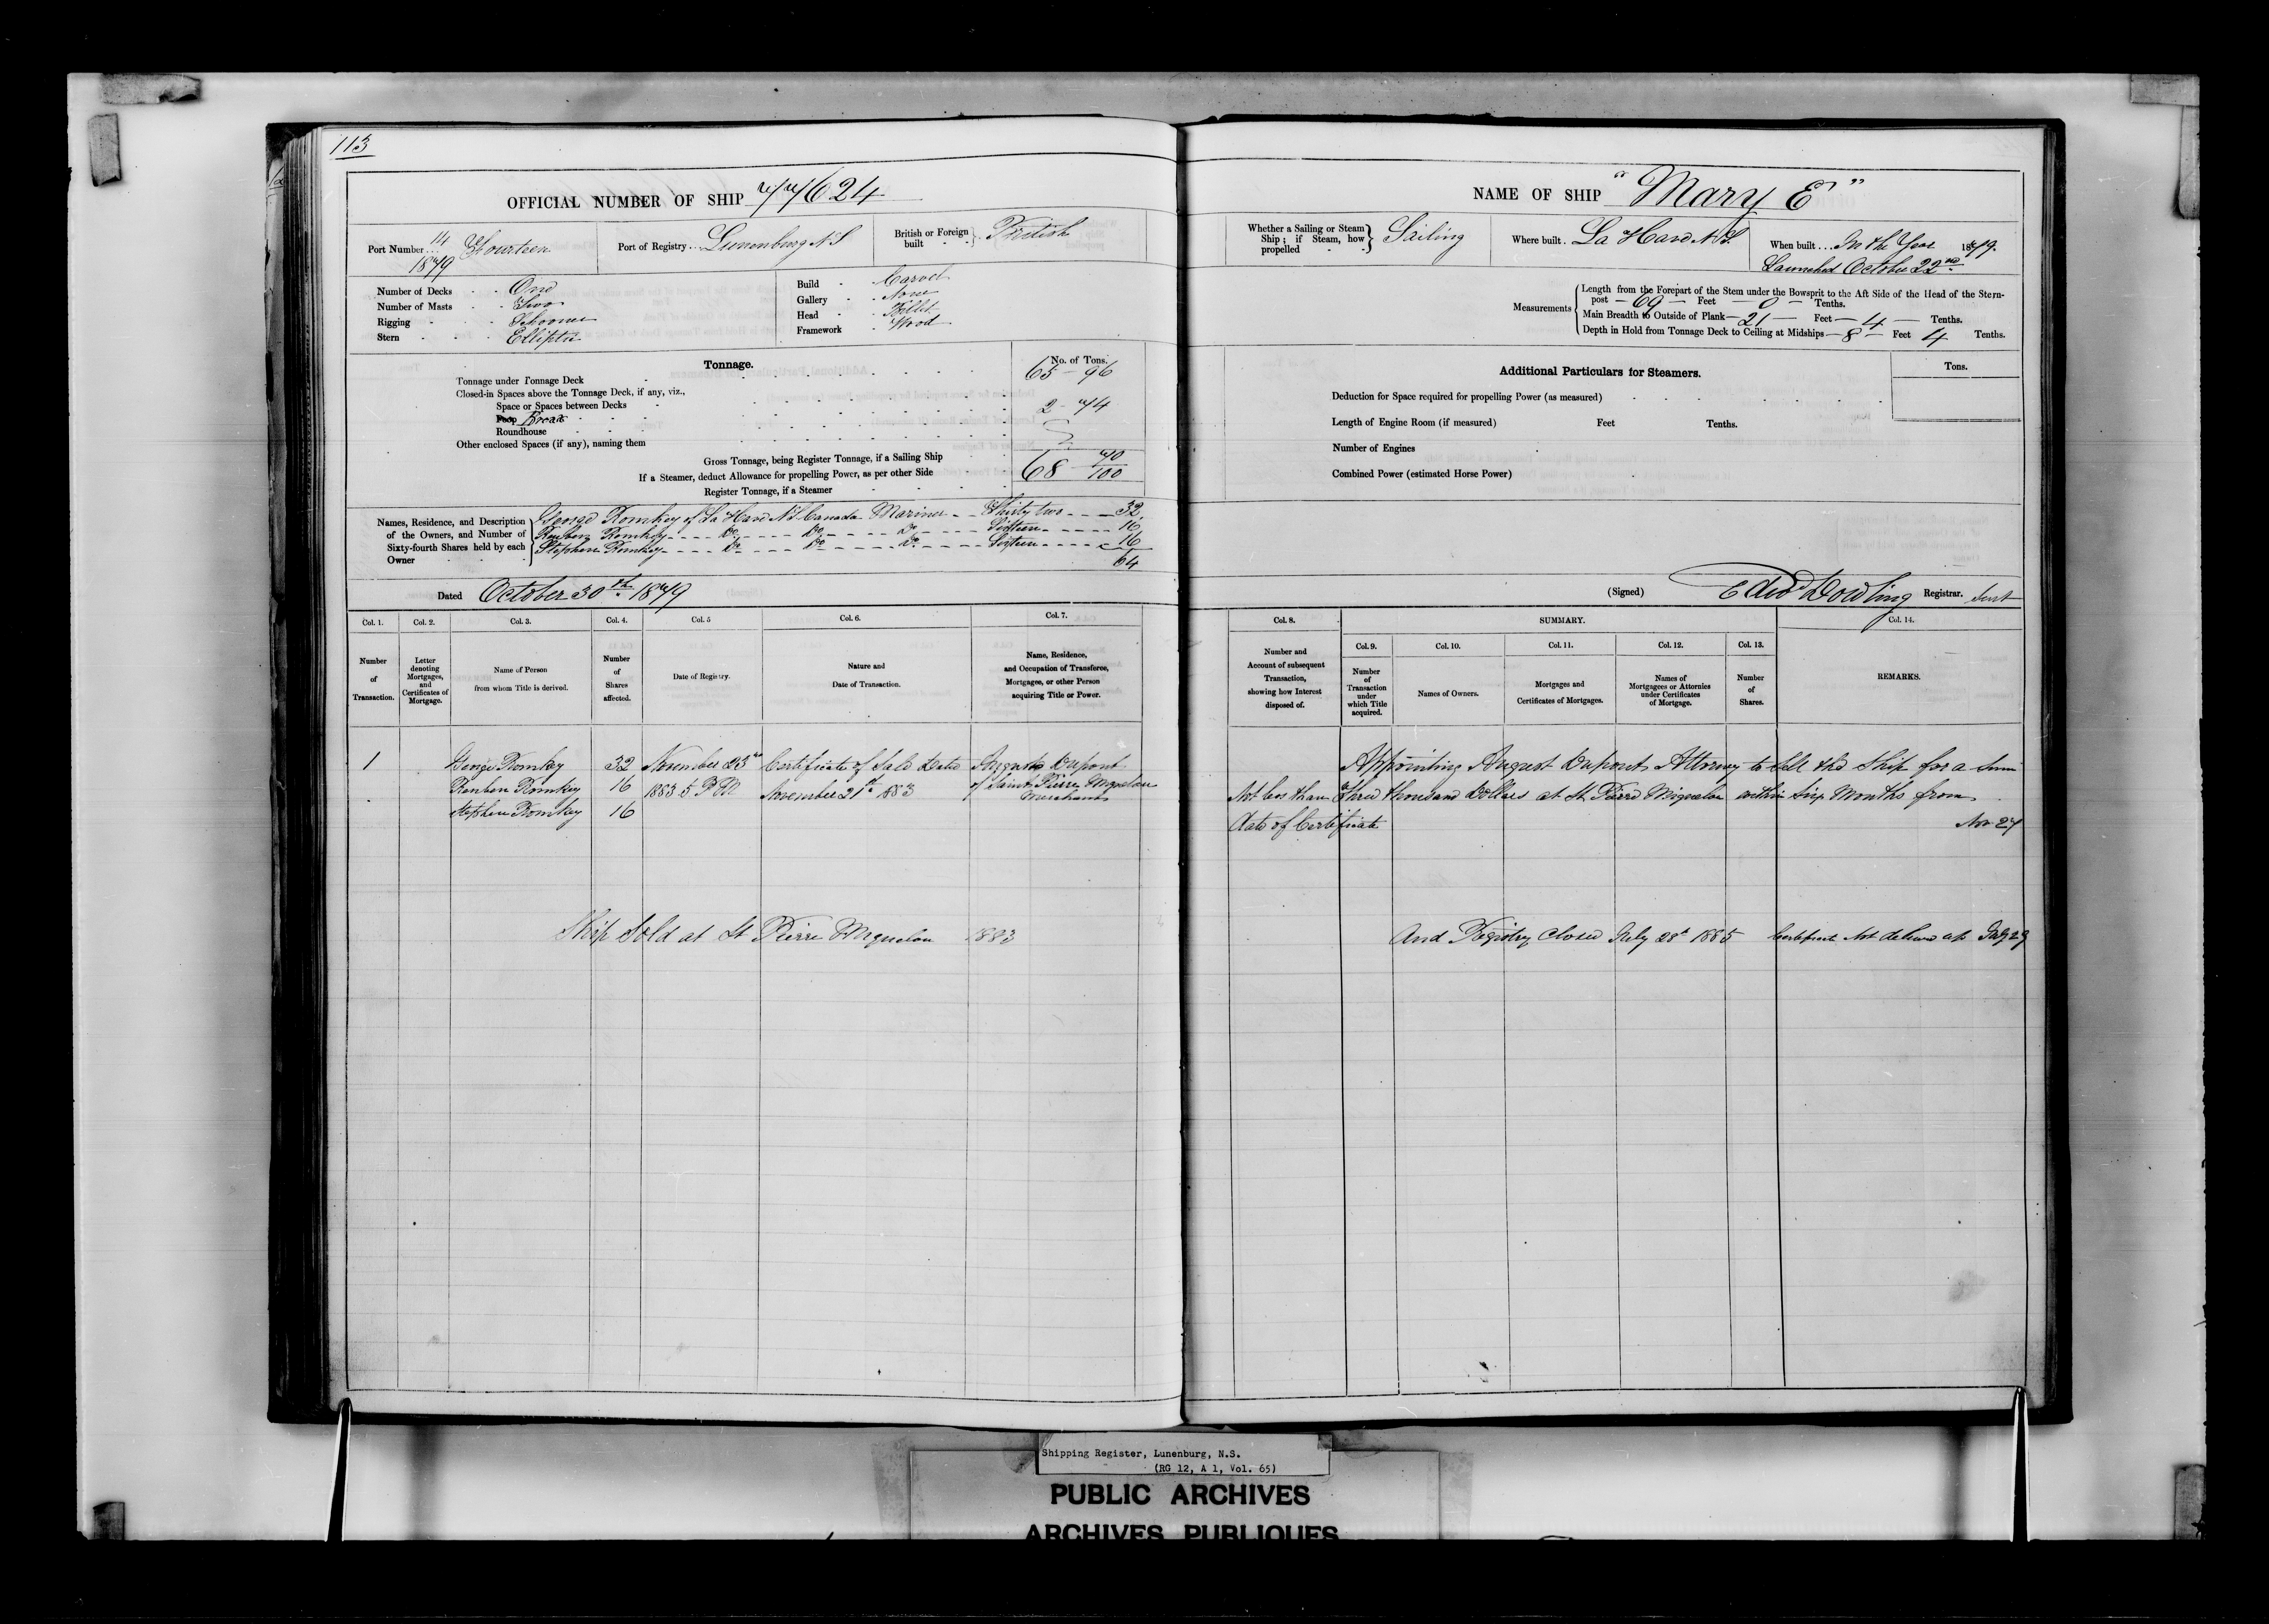 113
OFFICIAL NUMBER OF SHIP 77624
Port Number 14 Fourteen
1879
Port of Registry Lunenburg N S
British or Foreign built British
Number of Decks One
Number of Masts Two
Rigging Schooner
Stern Elliptic
Build Carvel
Gallery None
Head Billet
Framework Wood
Tonnage. No. of Tons.
Tonnage under Tonnage Deck 65 - 96
Closed-in Spaces above the Tonnage Deck, if any, viz.,
Space or Spaces between Decks 2 - 74
Poop Break
Roundhouse
Other enclosed Spaces (if any), naming them
Gross Tonnage, being Register Tonnage, if a Sailing Ship 68 70/100
If a Steamer, deduct Allowance for propelling Power, as per other Side
Register Tonnage, if a Steamer
Names, Residence, and Description of the Owners, and Number of Sixty-fourth Shares held by each Owner
George Romkey of La Have N S Canada Mariner - - Thirty two - - - 32
Reuben Romkey - - - - Do - - - - Do - - - - Do - - - - Sixteen - - - - - 16
Stephen Romkey - - - - Do - - - - Do - - - - Do - - - - Sixteen - - - - 16
64
Dated October 30th 1879
Col. 1. Col. 2. Col. 3. Col. 4. Col. 5 Col. 6. Col. 7.
Number of Transaction.
Letter denoting Mortgages, and Certificates of Mortgage.
Name of Person from whom Title is derived.
Number of Shares affected.
Date of Registry.
Nature and Date of Transaction.
Name, Residence, and Occupation of Transferee, Mortgagee, or other Person acquiring Title or Power.
1 George Romkey 32 November 23rd Certificate of Sale Dated August Dupont
Reuben Romkey 16 1883 5 P M November 21st 1883 of Saint Pierre Miquelon
Merchant
Stephen Romkey 16
Ship Sold at St Pierre Miquelon 1883
NAME OF SHIP "Mary E"
Whether a Sailing or Steam Ship; if Steam, how propelled Sailing
Where built. La Have N.S.
When built... In the Year 1879.
Launched October 22nd
Measurements
Length from the Forepart of the Stem under the Bowsprit to the Aft Side of the Head of the Stern-
post - 69 - Feet - 0 - Tenths.
Main Breadth to Outside of Plank - 21 - Feet - 4 - Tenths.
Depth in Hold from Tonnage Deck to Ceiling at Midships - 8 - Feet 4 Tenths.
Additional Particulars for Steamers. Tons.
Deduction for Space required for propelling Power (as measured)
Length of Engine Room (if measured) Feet Tenths.
Number of Engines
Combined Power (estimated Horse Power)
(Signed) Edwd Dowling Registrar.
Col. 8. SUMMARY. Col. 14.
Col. 9. Col. 10. Col. 11. Col. 12. Col. 13.
Number and Account of subsequent Transaction, showing how Interest disposed of.
Number of Transaction under which Title acquired.
Names of Owners.
Mortgages and Certificates of Mortgages.
Names of Mortgagees or Attornies under Certificates of Mortgage.
Number of Shares.
REMARKS.
Appointing August Dupont Attorney to Sell the Ship for a Sum
Not less than Three thousand Dollars at St Pierre Miquelon within Six Months from
date of Certificate
Nov 27
And Registry Closed July 28th 1885 Certificate Not delivered up July 29
Shipping Register, Lunenburg, N.S.
(RG 12, A 1, Vol. 65)
PUBLIC ARCHIVES
ARCHIVES PUBLIQUES